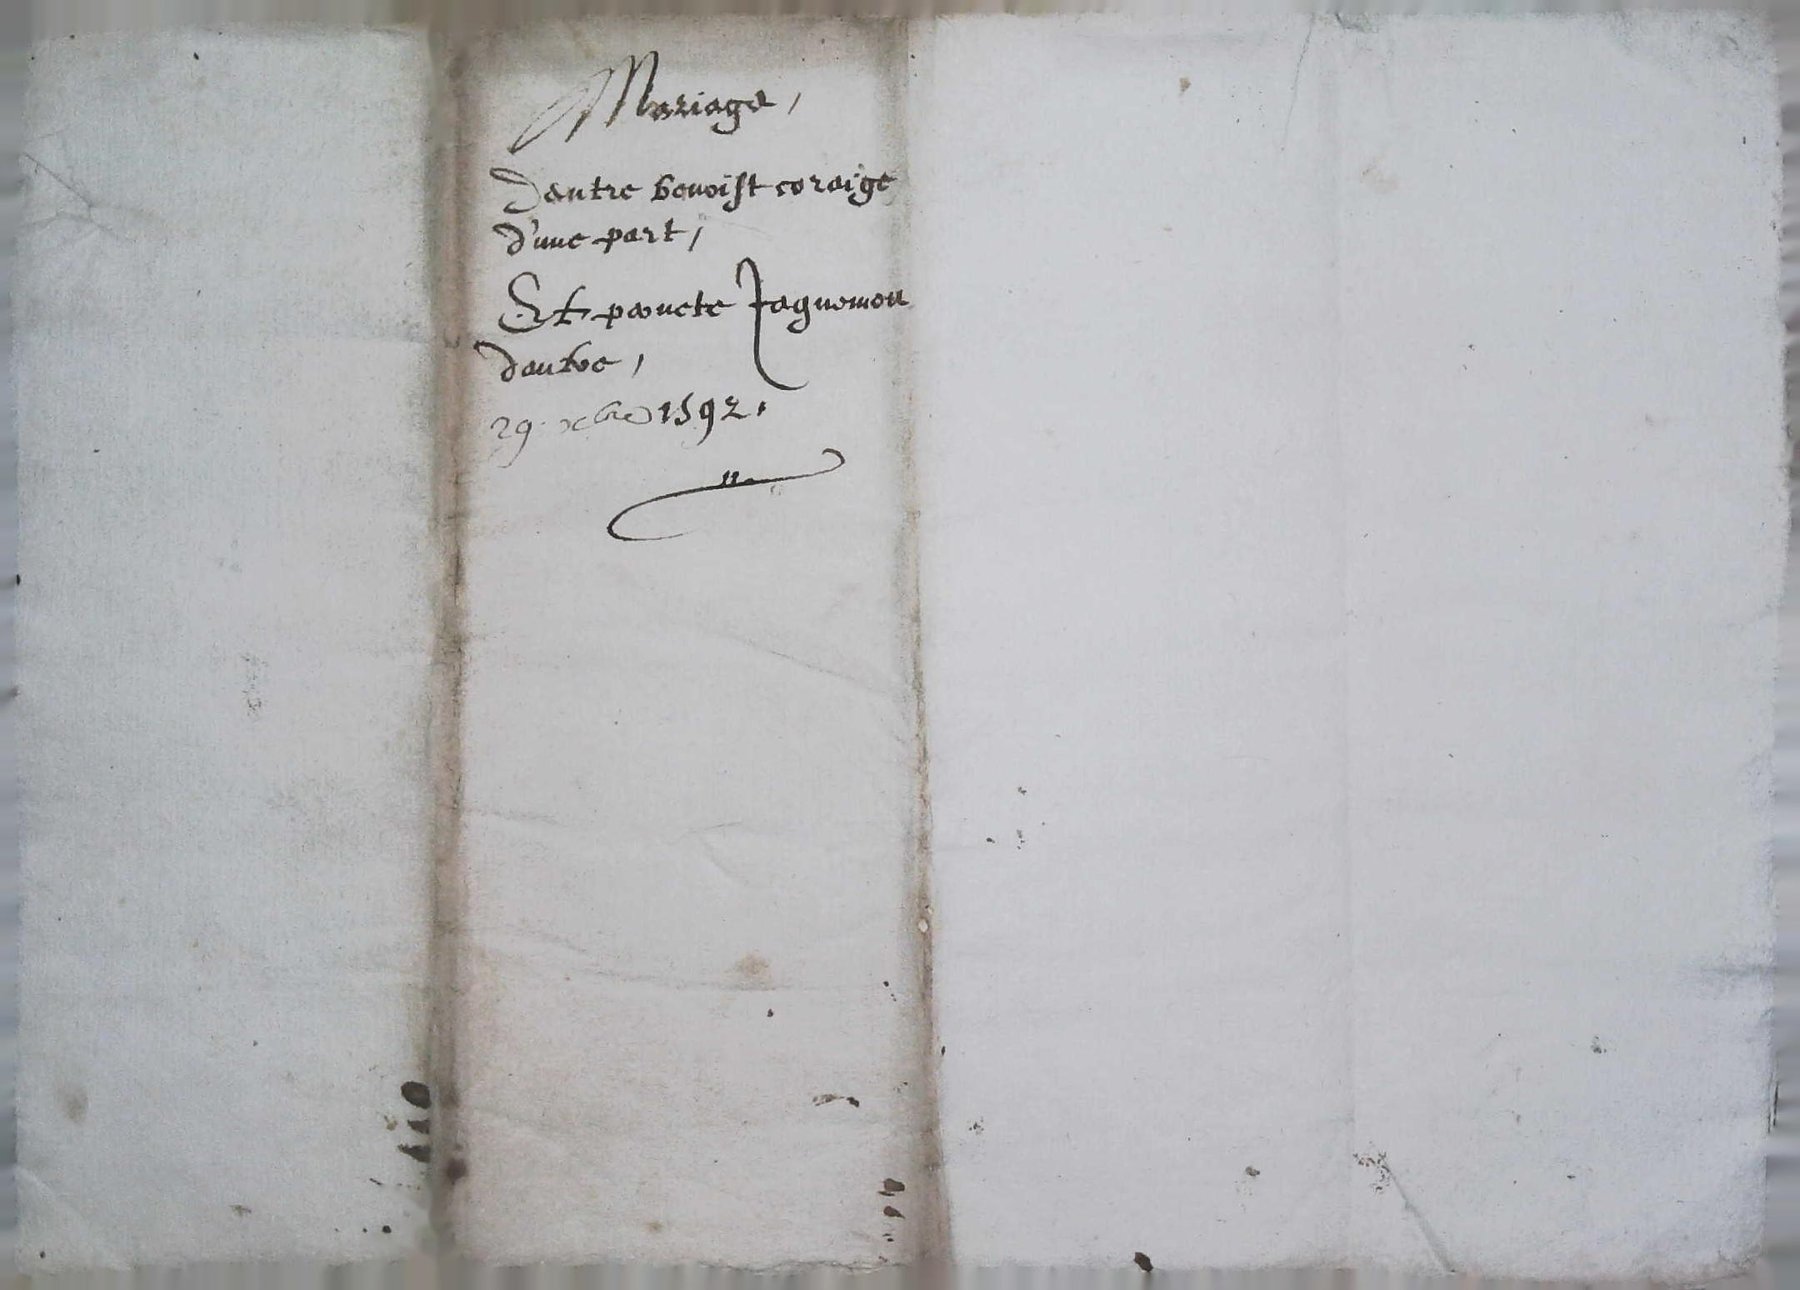 Mariage,
Dentre benoist coraige
d'une part,
Et pernete Jaquemon
dautre,
29. xbre 1592.